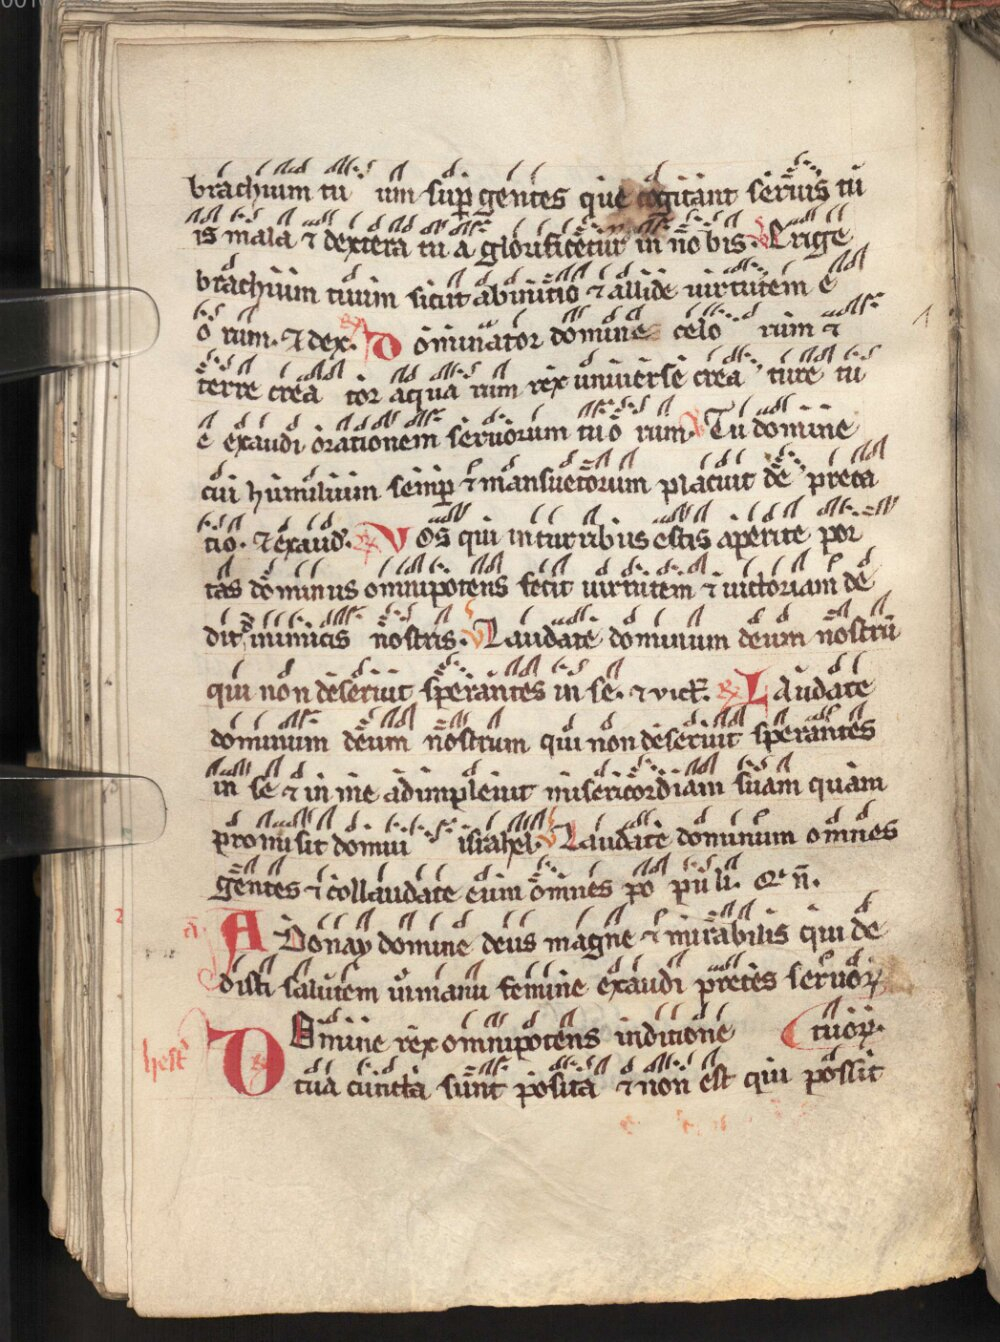 brachium tu um sup gentes que cogitant seruis tu
is mala ⁊ dextera tu a glorificetur in no bis. V Erige
brachium tuum sicut ab initio ⁊ allide uirtutem e
o rum. ⁊ dex. R Dominator domine celo rum ⁊
terre crea tor aqua rum rex uniuerse crea ture tu
e exaudi orationem seruorum tuo rum. V Tu domine
cui humilium semp ⁊ mansuetorum placuit de preca
tio. ⁊ exaud. R Vos qui in turribus estis aperite por
tas dominus omnipotens fecit uirtutem ⁊ uictoriam de
dit inimicis nostris. V Laudate dominum deum nostrū
qui non deseruit sperantes in se. ⁊ vict. R Laudate
dominum deum nostrum qui non deseruit sperantes
in se ⁊ in me adimpleuit misericordiam suam quam
promisit domui israhel. V Laudate dominum omnes
gentes ⁊ collaudate eum omnes po pu li. Qr n̄.
a Adonay domine deus magne ⁊ mirabilis qui de
disti salutem in manu femine exaudi preces seruoꝝ
hest Domine rex omnipotens in ditione tuoꝝ.
R tua cuncta sunt posita ⁊ non est qui possit